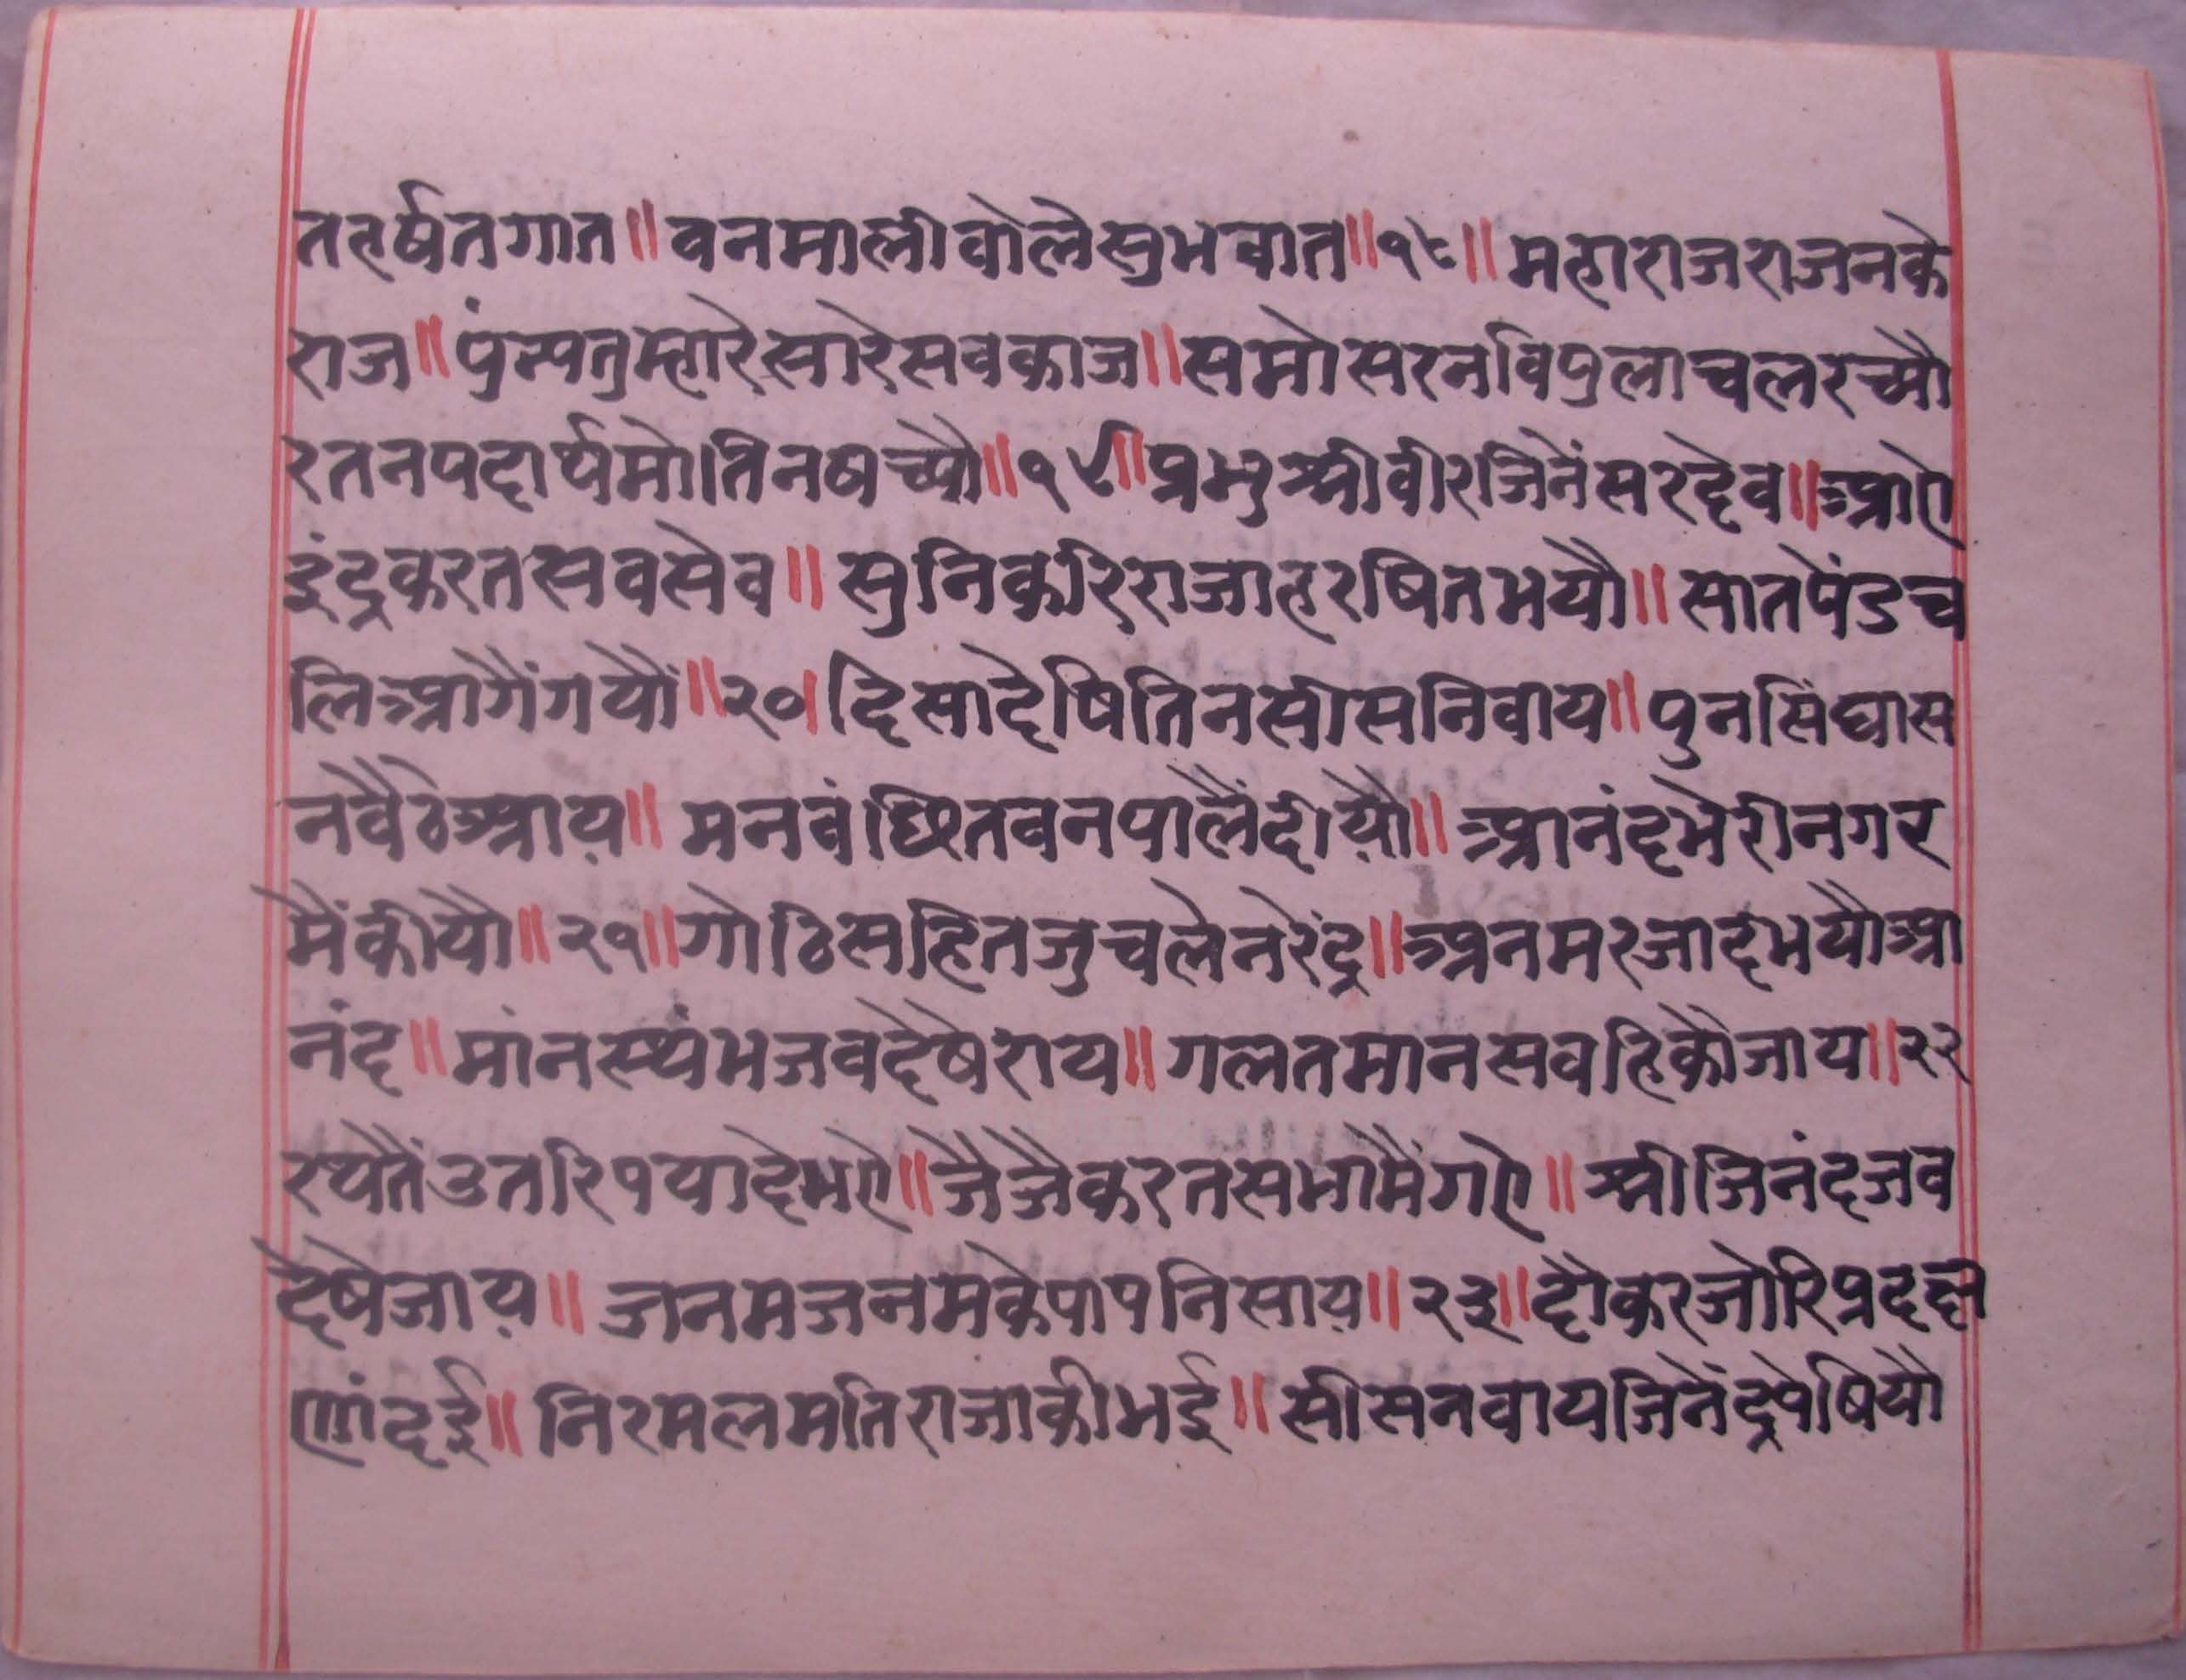 तहर्षतगात॥वनमालीवोलेसुभवात॥१८॥महाराजराजनके
राज॥पुंन्यतुम्हारेसारेसवकाज॥समोसरनविपुलाचलरच्यौ
रतनपदार्थमोतिनषच्यौ॥१९॥प्रभुश्रीवीरजिनेंसरदेव॥आऐ
इंद्रकरतसवसेव॥सुनिकरिराजाहरषितभयौ॥सातपेंडच
लिआगैंगयौं॥२०।दिसादेषितिनसीसनिवाय॥पुनसिंघास
नवैठेआय॥मनवंछितवनपालैंदीयौ॥आनंदभेरीनगर
मैंकीयौ॥२१॥गोठिसहितजुचलेनरेंद्र॥अनमरजादभयौआ
नंद॥मांनस्थंभजवदेषैराय॥गलतमानसवहिकौजाय॥२२
रथतैंउतरिपयादेभऐ॥जैजैकरतसभामैंगऐ॥श्रीजिनंदजव
देषेजाय॥जनमजनमकेपापनिसाय॥२३॥दौकरजोरिप्रदछ
णांदई॥निरमलमतिराजाकीभई॥सीसनवायजिनेंद्रपेषियौ